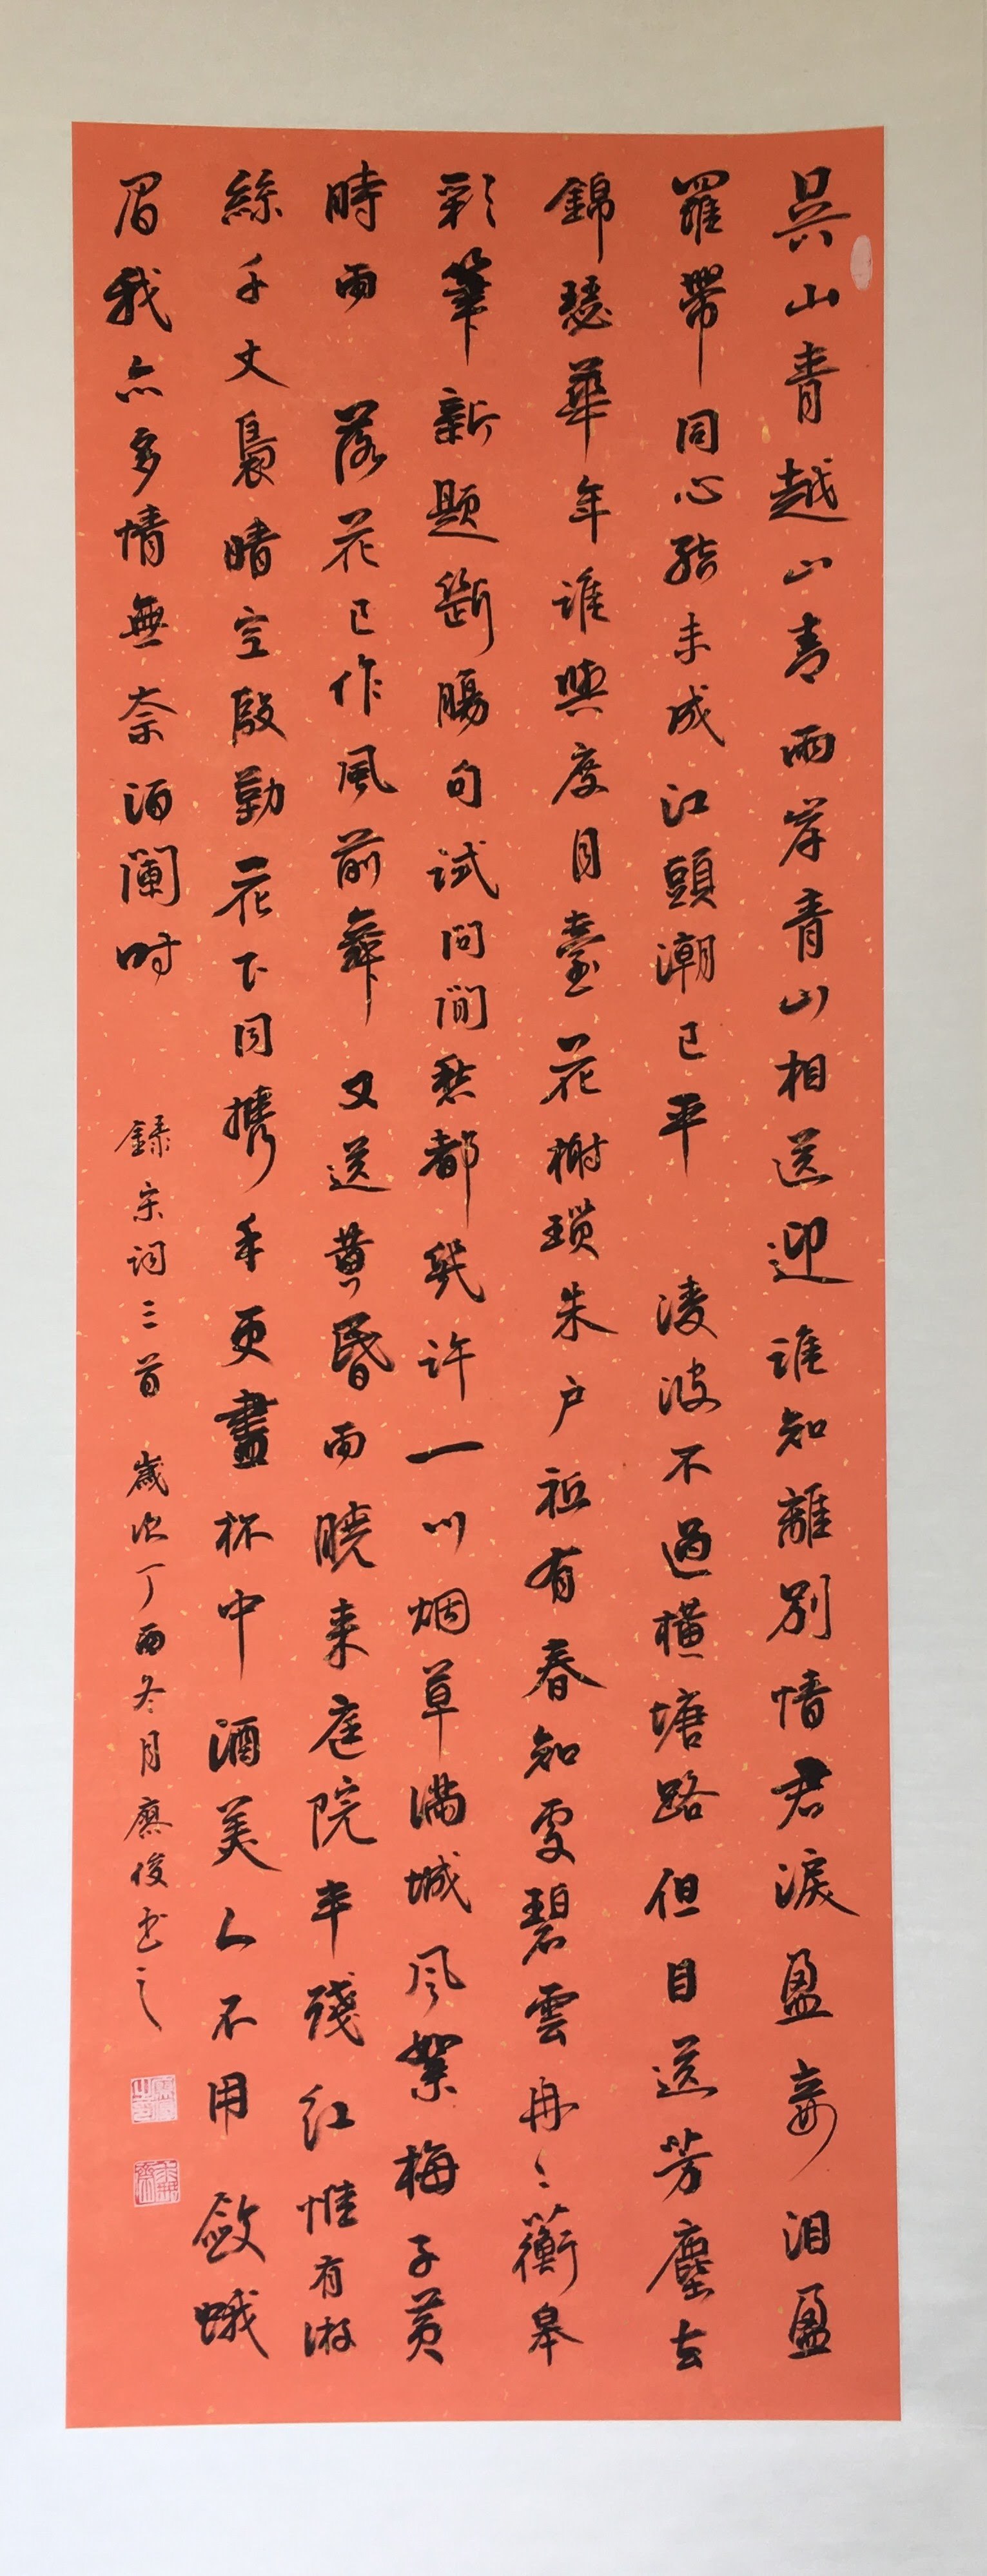 吳山青越山青兩岸青山相送迎誰知離別情君淚盈妾泪盈
羅帶同心結未成江頭潮已平 凌波不過橫塘路但目送芳塵去
錦瑟華年誰與度月臺花榭瑣朱户祗有春知處碧雲冉〻蘅皋
彩筆新題斷腸句試問閒愁都幾許一川烟草滿城风絮梅子黄
時雨 落花已作風前舞又送黄昏雨曉来庭院半殘红惟有游
絲千丈裊晴空殷勤花下同携手更盡杯中酒美人不用斂蛾
眉我亦多情無奈酒闌时 錄宋词三首 歲次丁酉冬月廖俊书之